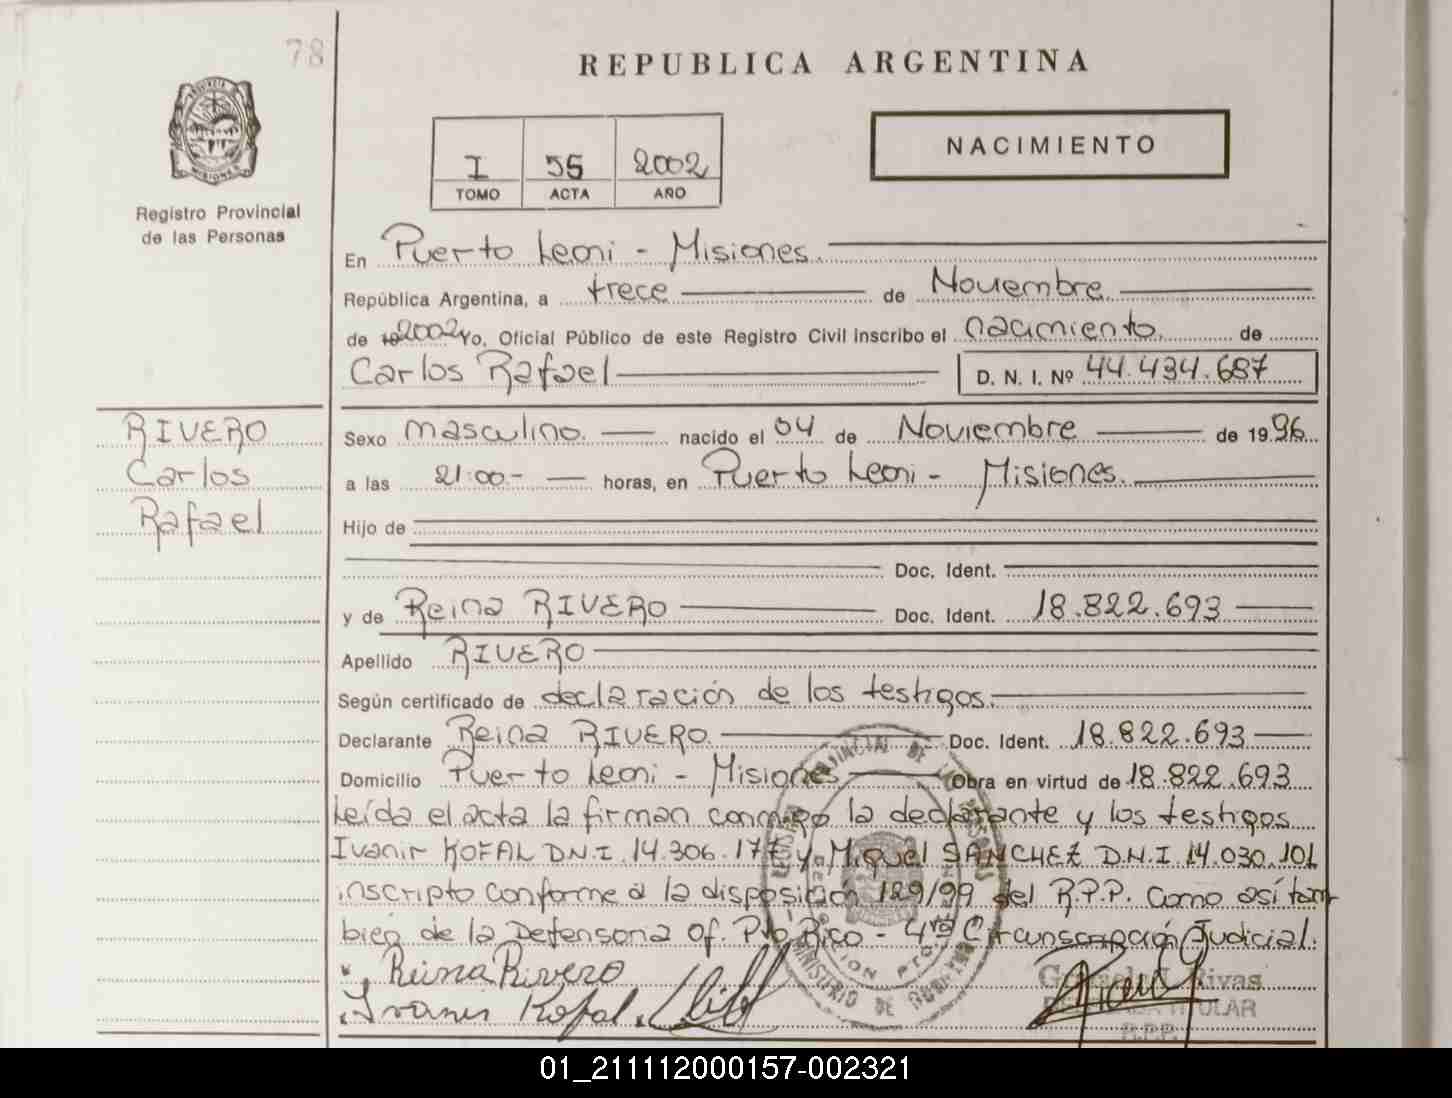 78
REPUBLICA ARGENTINA
PROVINCIA DE MISIONES
Registro Provincial
de las Personas
I 55 2002
TOMO ACTA AÑO
NACIMIENTO
En Puerto Leoni - Misiones.
República Argentina, a trece de Noviembre
de 2002 Yo, Oficial Público de este Registro Civil inscribo el nacimiento. de
Carlos Rafael D. N. I. Nº 44.434.687
RIVERO
Carlos
Rafael
Sexo masculino. nacido el 04 de Noviembre de 1996
a las 21:00.- horas, en Puerto Leoni - Misiones.
Hijo de
Doc. Ident.
y de Reina RIVERO Doc. Ident. 18.822.693
Apellido RIVERO
Según certificado de declaración de los testigos.
Declarante Reina RIVERO. Doc. Ident. 18.822.693
Domicilio Puerto Leoni - Misiones Obra en virtud de 18.822.693
Leída el acta la firman conmigo la declarante y los testigos
Ivanir KOFAL D.N.I. 14.306.177 y Miguel SANCHEZ D.N.I. 14.030.101
inscripto conforme a la disposición 129/99 del R.P.P. Como así tam
bién de la Defensoria Of. Pto Rico - 4ta Circunscripción Judicial.
Reina Rivero
Ivanir Kofal
Rivas
TITULAR
R.P.P.
01_211112000157-002321